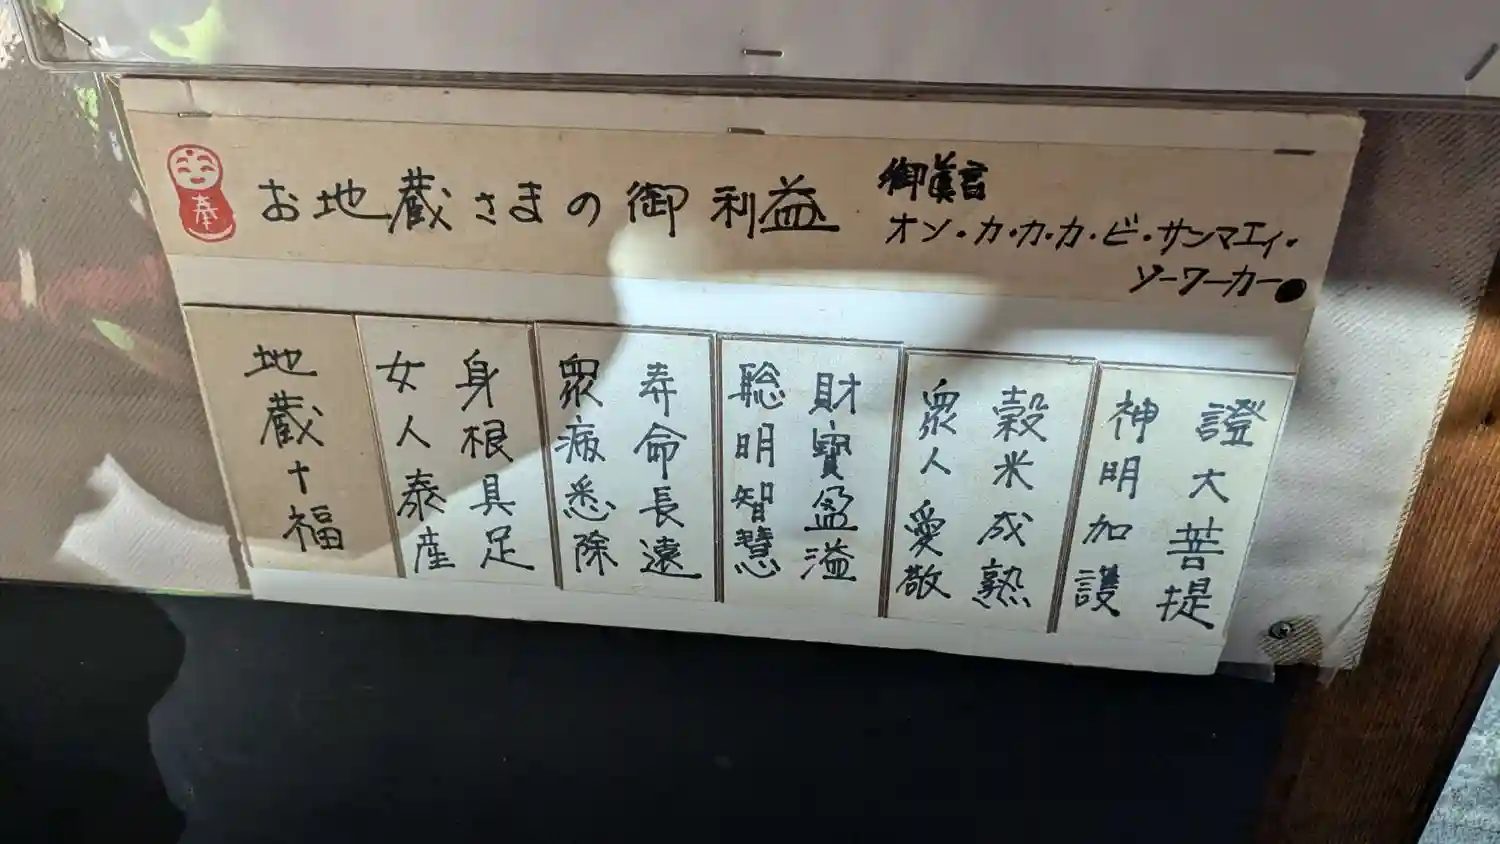 奉
お地蔵さまの御利益
御眞言
オン・カ・カ・カ・ビ・サンマエイ・
ソーワーカー●
地蔵十福
女人泰産
身根具足
眾病悉除
寿命長遠
聡明智慧
財寶盈溢
眾人愛敬
穀米成熟
神明加護
證大菩提